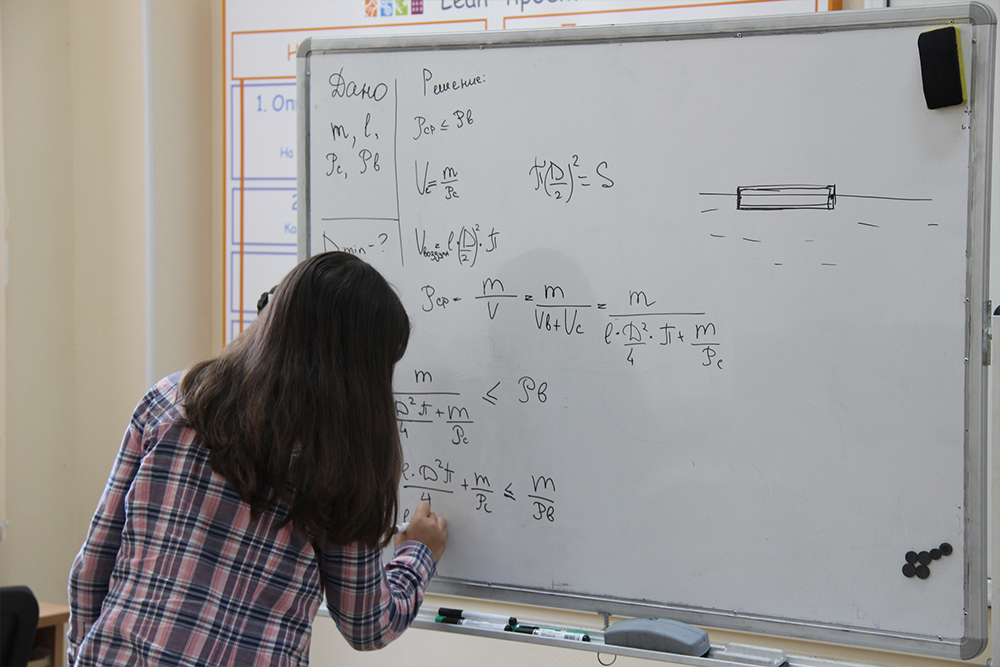 Lean
1. Оп
Но
2
Ка
Дано
m, l,
ρc, ρв
Dmin-?
Решение:
ρср ≤ ρв
Vc = m/ρc
π(D/2)² = S
Vвоздуха = l·(D/2)²·π
ρср = m/V = m/(Vв+Vc) = m/(l·D²/4·π+m/ρc)
m/(D²π/4+m/ρc) ≤ ρв
l·D²π/4 + m/ρc ≤ m/ρв
l